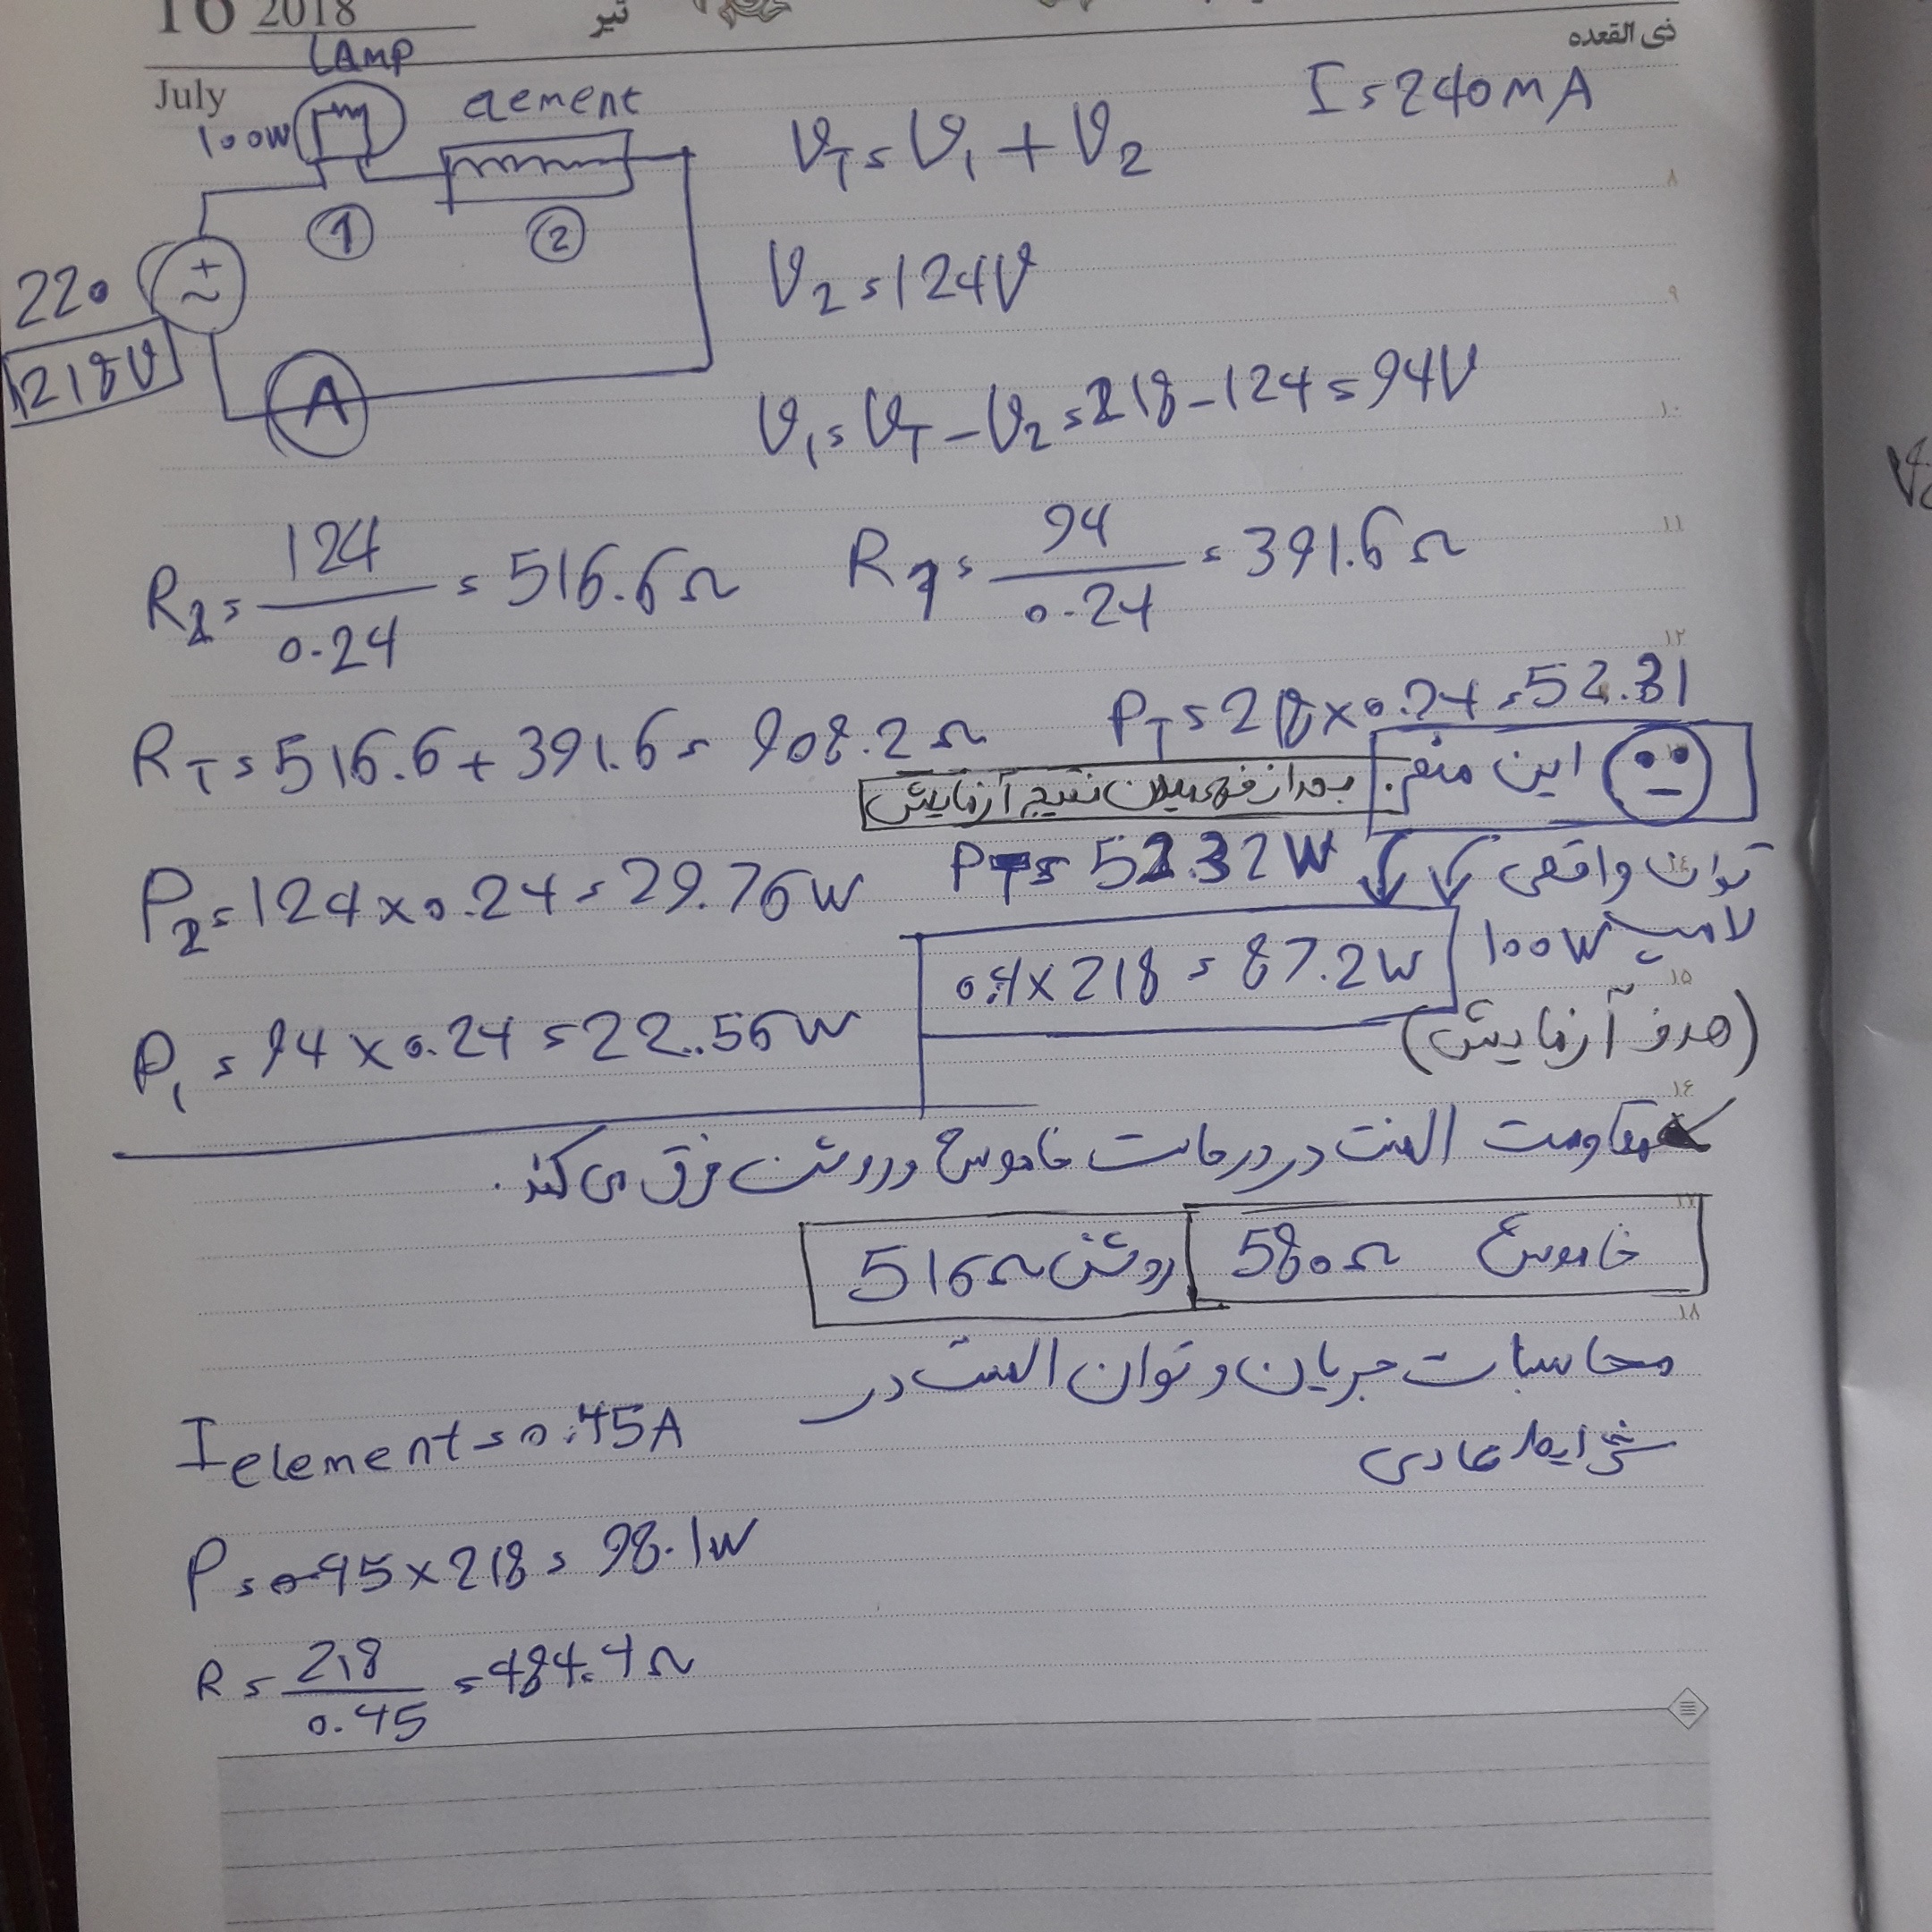 16 2018
تیر
ذی القعده
July
LAMP
100W
element
I = 240mA
VT = V1 + V2
1
2
220
218V
A
V2 = 124V
V1 = VT - V2 = 218 - 124 = 94V
R2 = 124 / 0.24 = 516.6Ω
R1 = 94 / 0.24 = 391.6Ω
RT = 516.6 + 391.6 = 908.2Ω
PT = 218 x 0.24 = 52.31
این منم
بعد از فهمیدن نتیجه آزمایش
P2 = 124 x 0.24 = 29.76W
PT = 52.32W
توان واقعی
لامپ 100W
0.4 x 218 = 87.2W
(هدف آزمایش)
P1 = 94 x 0.24 = 22.56W
مقاومت المنت در درحالت خاموش و روشن فرق می کند.
خاموش 580Ω
روشن 516Ω
محاسبات جریان و توان المنت در
شرایط عادی
I element = 0.45A
P = 0.45 x 218 = 98.1W
R = 218 / 0.45 = 484.4Ω
۸
۹
۱۰
۱۱
۱۲
۱۴
۱۵
۱۶
۱۷
۱۸